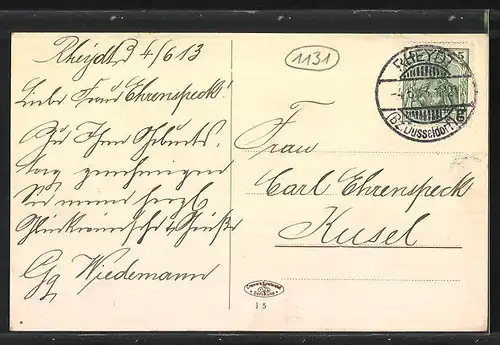 Rheydt d 4/6 13
Liebe Frau Ehrenspeck!
Zu Ihrem Geburts
tag genehmigen
Sie meine herzl.
Glückwünsche u. Grüße
Gg Wiedemann
1131
RHEYDT
(Bz. Düsseldorf)
5
Frau
Carl Ehrenspeck
Kusel
15